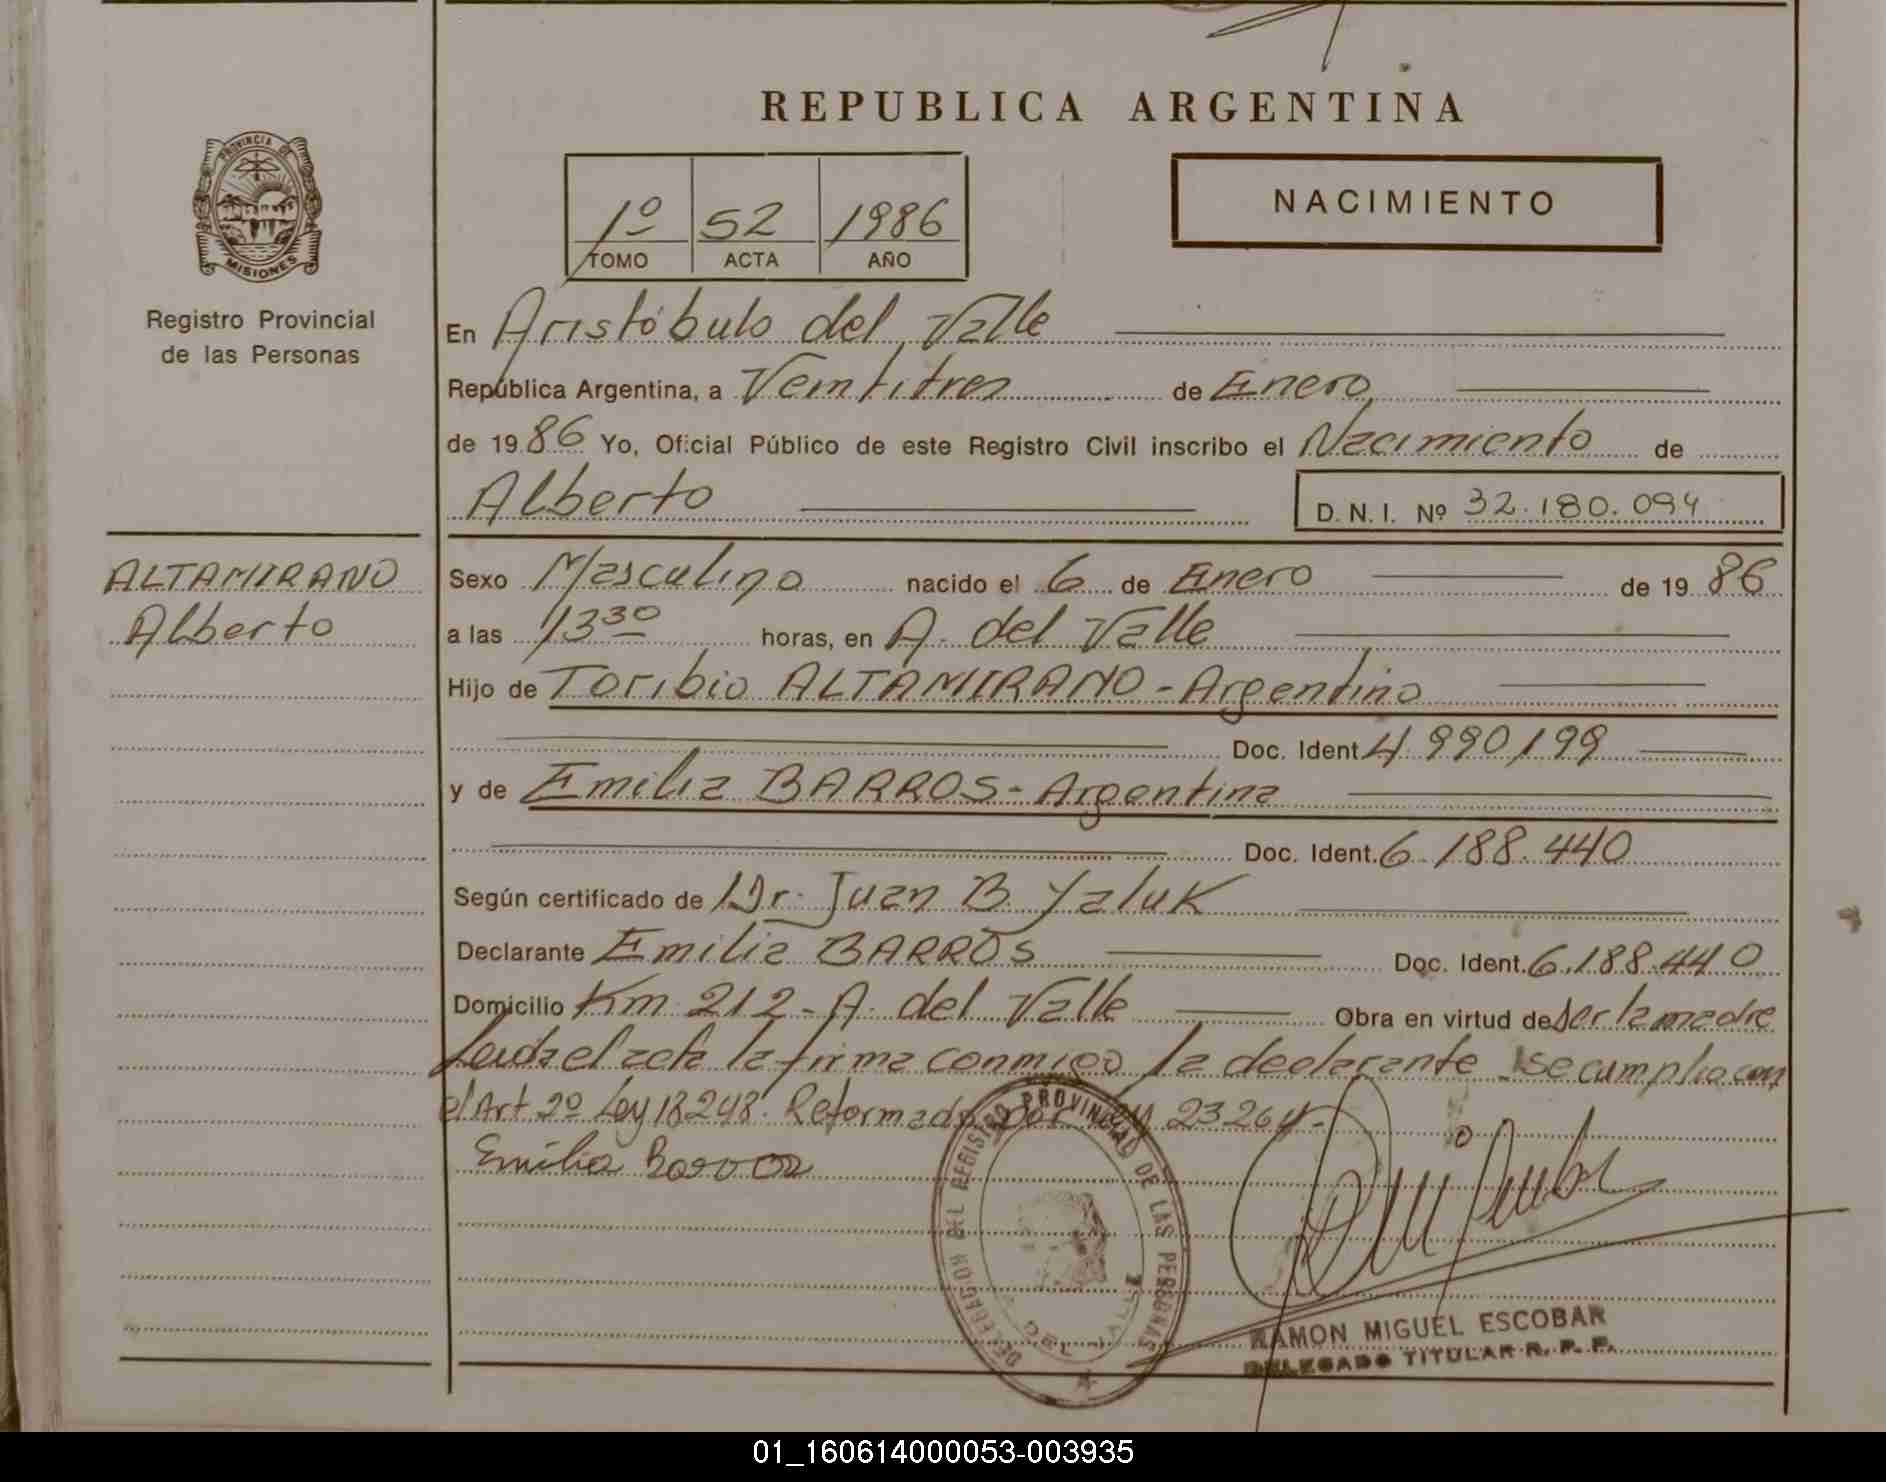 REPUBLICA ARGENTINA
PROVINCIA DE
MISIONES
Registro Provincial
de las Personas
1º 52 1986
TOMO ACTA AÑO
NACIMIENTO
En Aristóbulo del Valle
República Argentina, a Veintitres de Enero
de 1986 Yo, Oficial Público de este Registro Civil inscribo el Nacimiento de
Alberto D. N. I. Nº 32.180.094
ALTAMIRANO
Alberto
Sexo Masculino nacido el 6 de Enero de 1986
a las 13 30 horas, en A. del Valle
Hijo de Toribio ALTAMIRANO - Argentino
Doc. Ident. 4.990.199
y de Emilia BARROS - Argentina
Doc. Ident. 6.188.440
Según certificado de Dr. Juan B. Yaluk
Declarante Emilia BARROS Doc. Ident. 6.188.440
Domicilio Km 212 - A. del Valle Obra en virtud de ser la madre
Leida el acta la firma conmigo la declarante Se cumplio con
el Art 2º Ley 18248. Reformado por Ley 23264-
Emilia Barros
DELEGACION DEL REGISTRO PROVINCIAL DE LAS PERSONAS
RAMON MIGUEL ESCOBAR
DELEGADO TITULAR R. P. P.
01_160614000053-003935